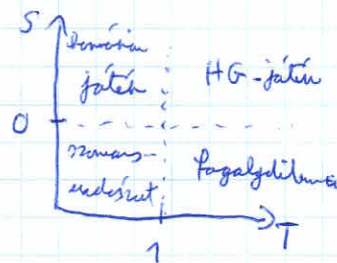 S
harmónia
játék
HG-játék
0
szarvas-
vadászat
fogolydilemma
T
1